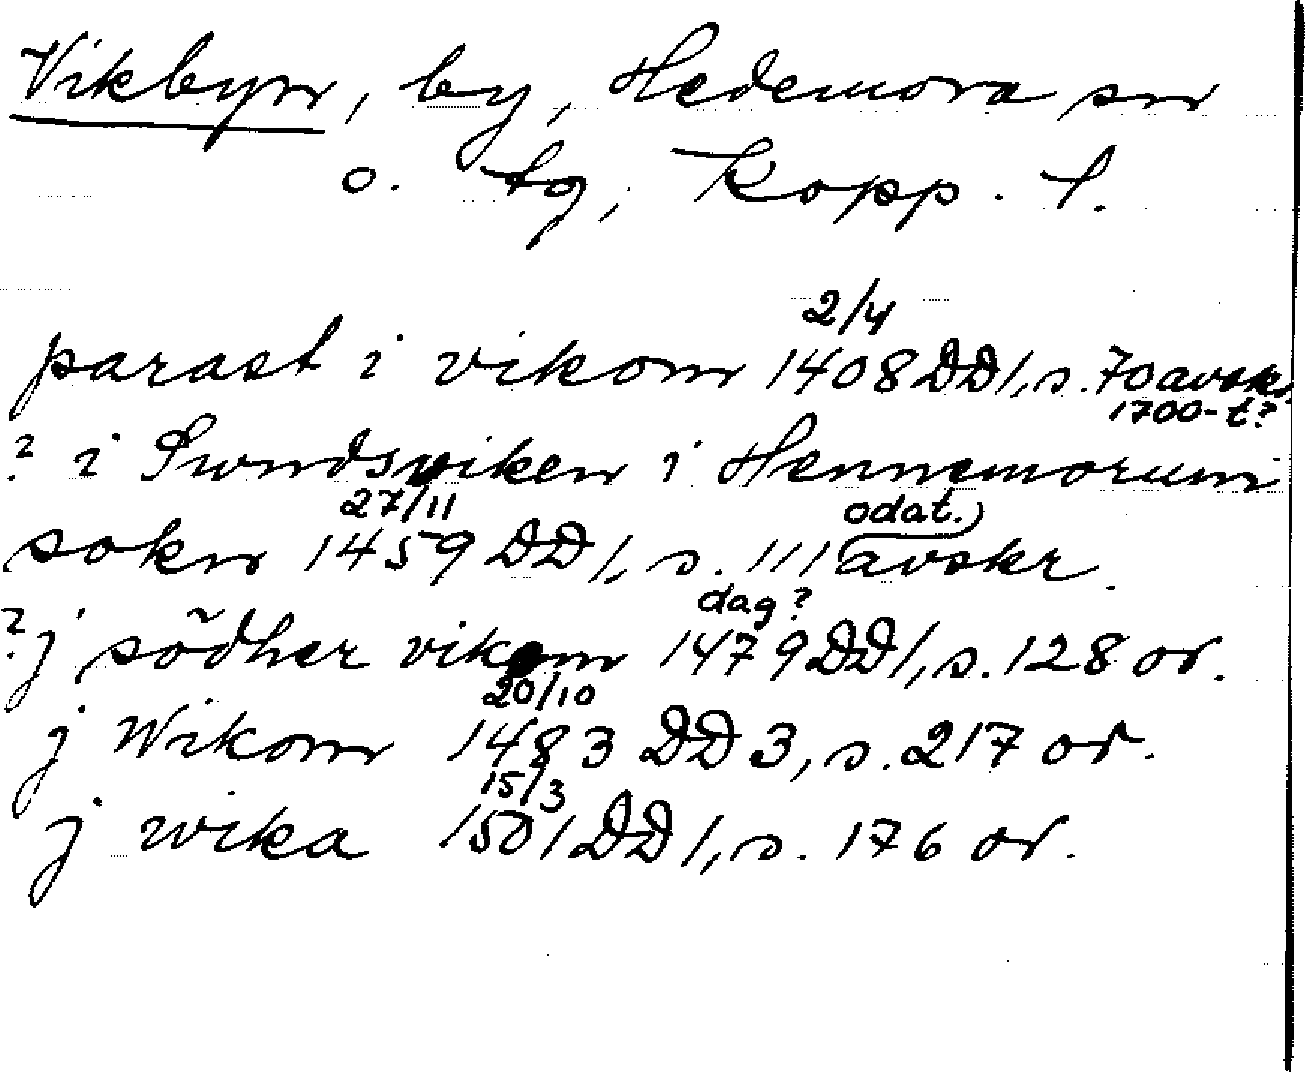 Vikbyn, by, Hedemora sn
o. tg, Kopp. l.
2/4
parast i vikom 1408 DD1, s. 70 avskr.
1700-t?
? i Swndsviken i Hennemorum
27/11 odat.)
sokn 1459 DD1, s. 111 avskr.
dag?
? j södher vikom 1479 DD1, s. 128 or.
20/10
j Wikom 1483 DD3, s. 217 or.
15/3
j wika 1501 DD1, s. 176 or.